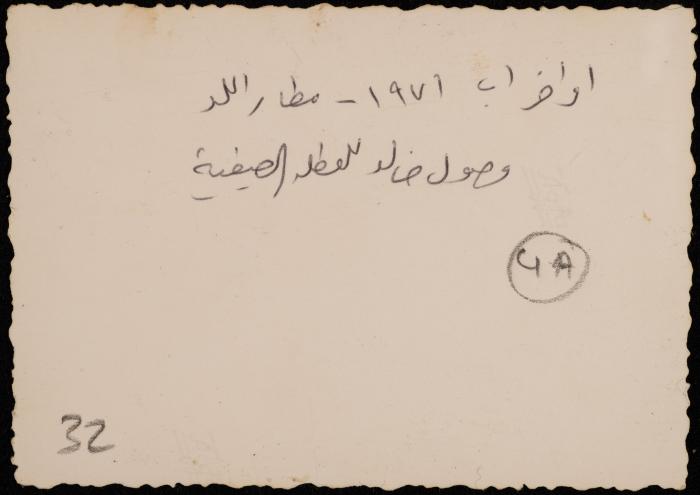 اواخر اب ١٩٧١ - مطار اللد
وصول خالد للعطله الصيفية
32